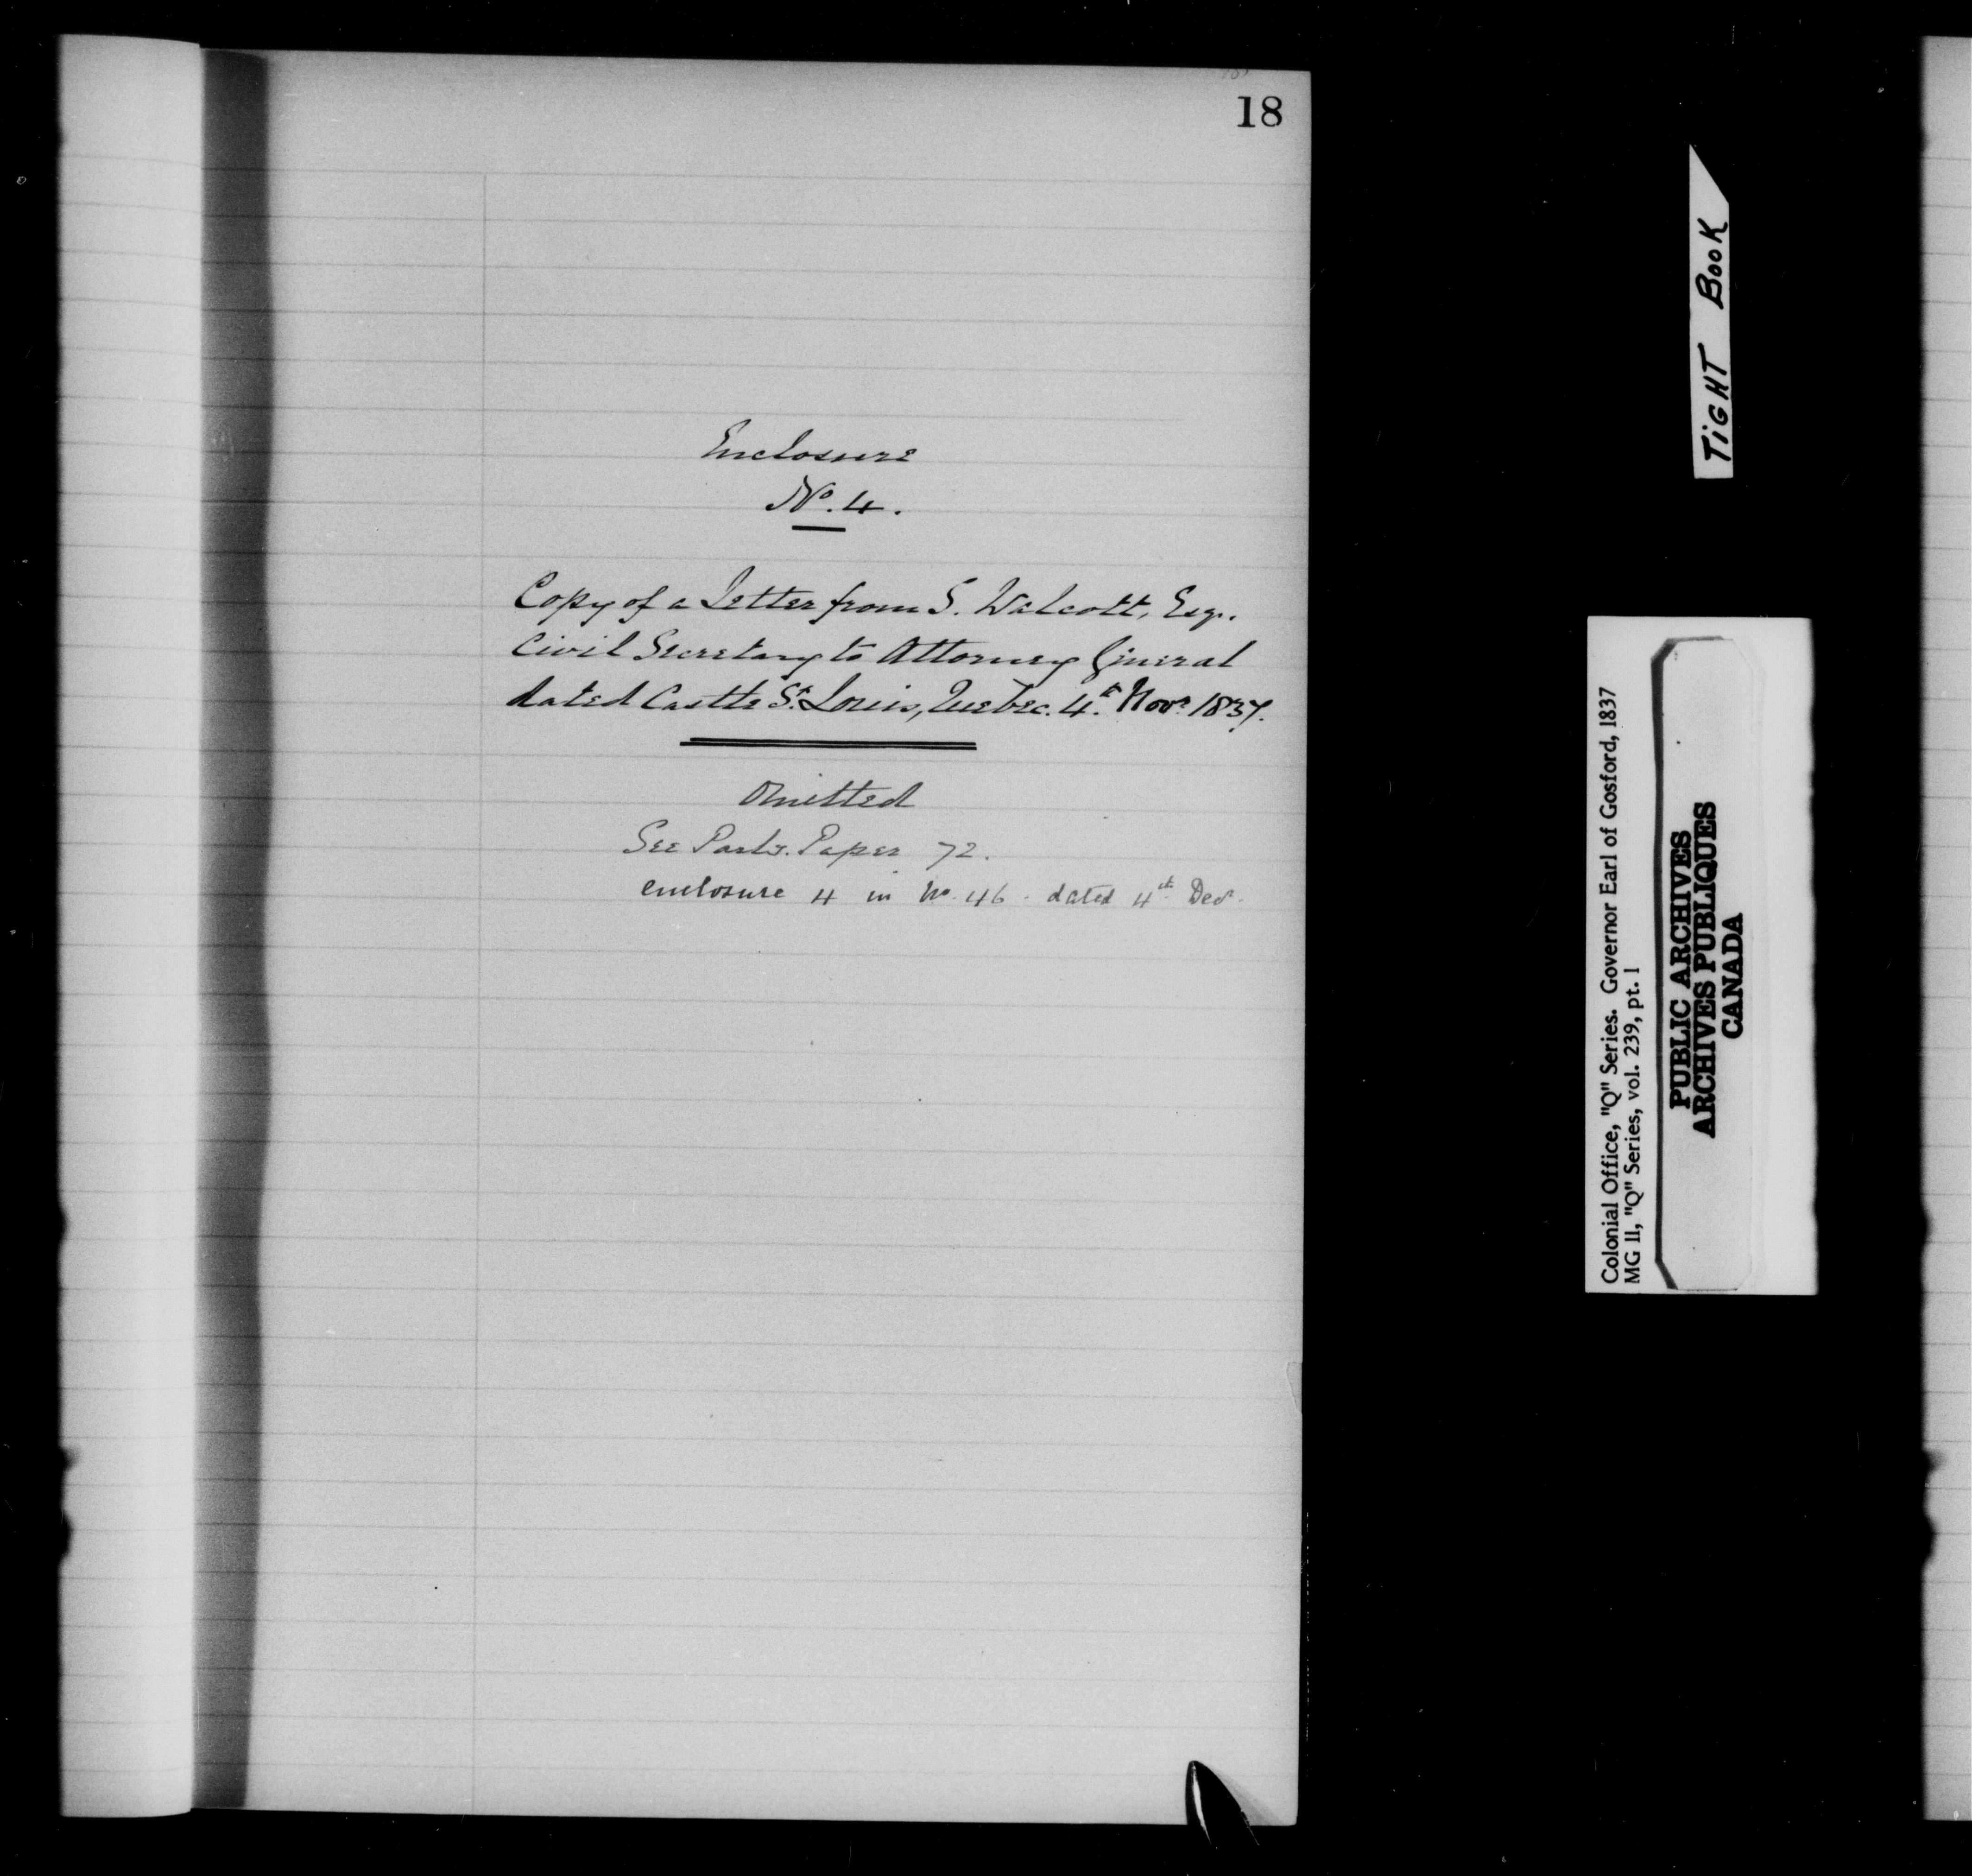 18
Enclosure
No. 4.
Copy of a Letter from S. Walcott, Esqr.
Civil Secretary to Attorney General
dated Castle St. Louis, Quebec. 4th Novr. 1837.
Omitted
See Parly. Paper 72.
enclosure 4 in No. 46. dated 4th Decr.
TIGHT BOOK
Colonial Office, "Q" Series. Governor Earl of Gosford, 1837
MG 11, "Q" Series, vol. 239, pt. 1
PUBLIC ARCHIVES
ARCHIVES PUBLIQUES
CANADA